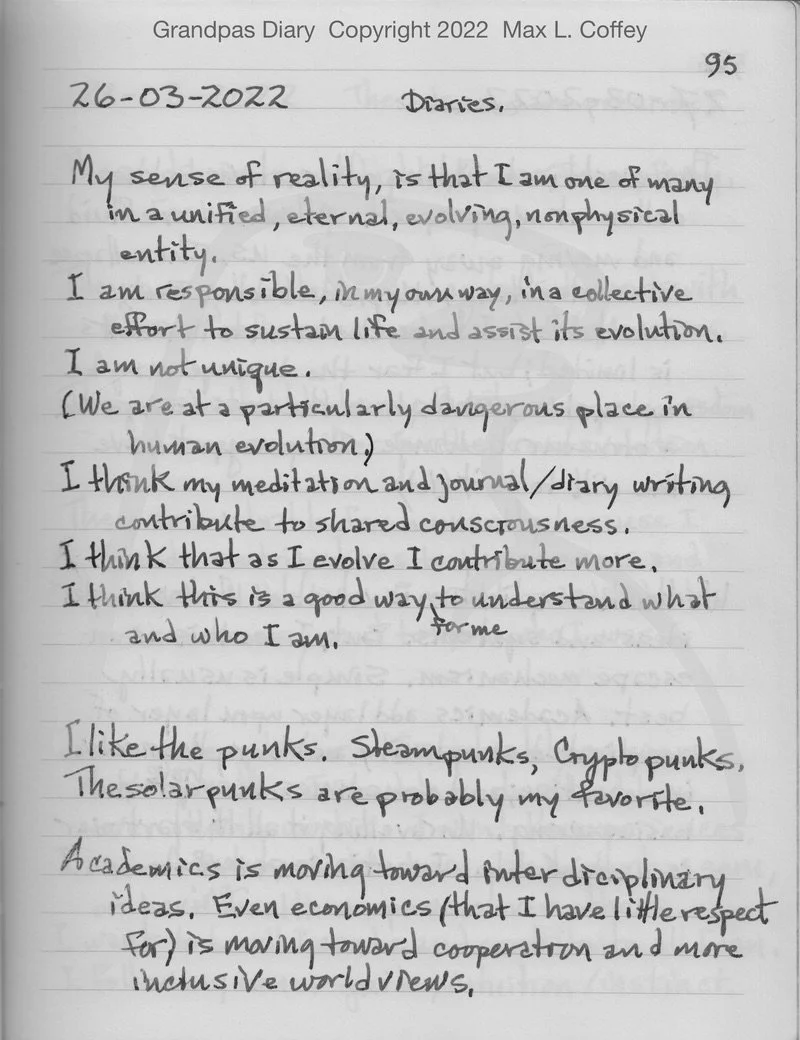 Grandpas Diary Copyright 2022 Max L. Coffey
95
26-03-2022 Diaries.
My sense of reality, is that I am one of many
in a unified, eternal, evolving, nonphysical
entity.
I am responsible, in my own way, in a collective
effort to sustain life and assist its evolution.
I am not unique.
(We are at a particularly dangerous place in
human evolution)
I think my meditation and journal/diary writing
contribute to shared consciousness.
I think that as I evolve I contribute more.
I think this is a good way to understand what
for me
and who I am.
I like the punks. Steampunks, Cryptopunks,
The solarpunks are probably my favorite.
Academics is moving toward inter diciplinary
ideas. Even economics (that I have little respect
for) is moving toward cooperation and more
inclusive world views.